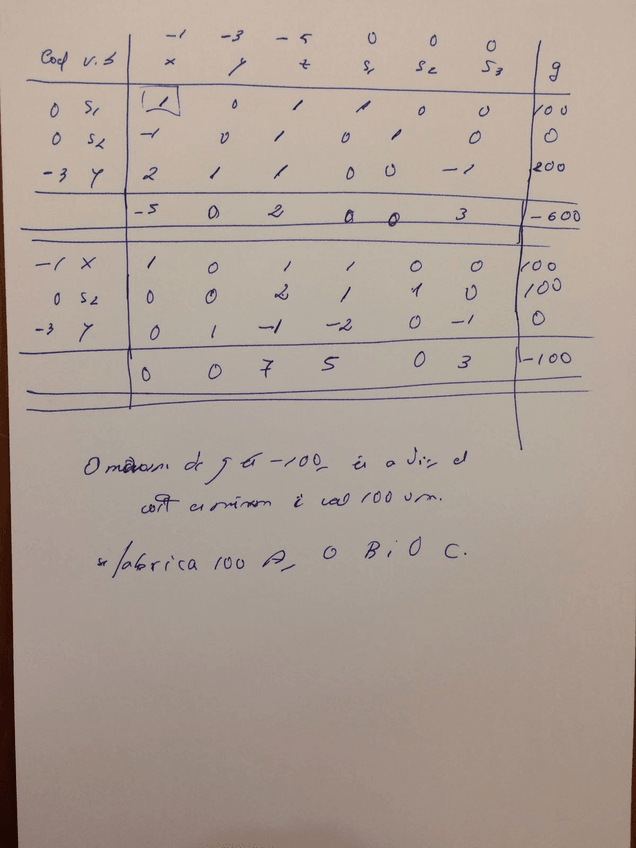 -1 -3 -5 0 0 0
Coef v.b x y z S1 S2 S3 g
0 S1 1 0 1 1 0 0 100
0 S2 -1 0 1 0 1 0 0
-3 y 2 1 1 0 0 -1 200
-5 0 2 0 0 3 -600
-1 x 1 0 1 1 0 0 100
0 S2 0 0 2 1 1 0 100
-3 y 0 1 -1 -2 0 -1 0
0 0 7 5 0 3 -100
de g és -100, és a dir, el
cost i val 100 u.m.
se fabrica 100 A, 0 B i 0 C.